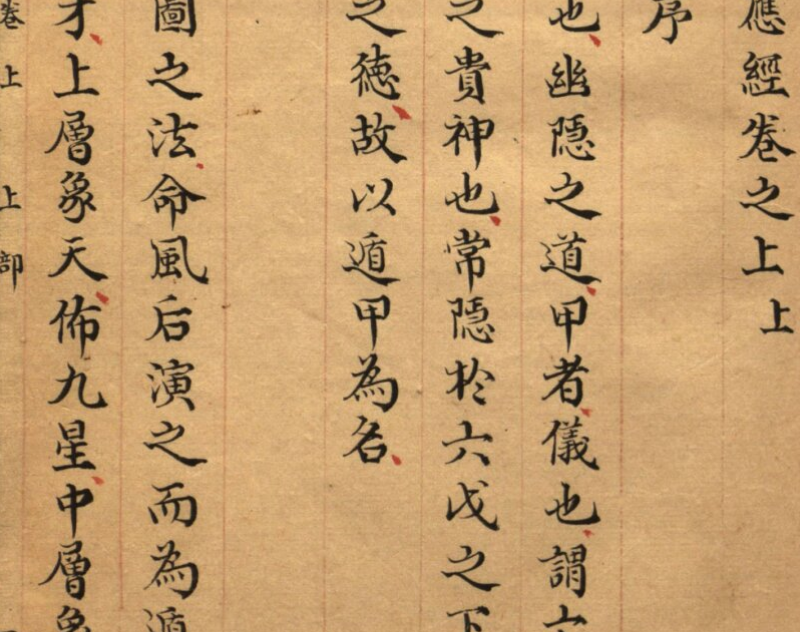 應經卷之上上
序
也幽隱之道甲者儀也謂六
之貴神也常隱於六戊之下
之德故以遁甲為名
圖之法命風后演之而為遁
才上層象天佈九星中層象
卷上 上部